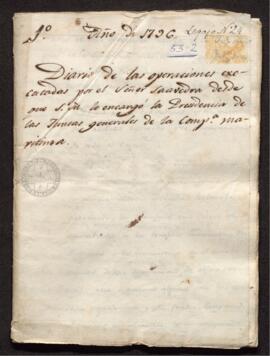 1º Año de 1796. Legajo Nº 24
53-2
Diario de las operaciones exe-
cutadas por el Señor Saavedra desde
que S. M. le encargó la Presidencia de
las Juntas generales de la Compª ma-
ritima.